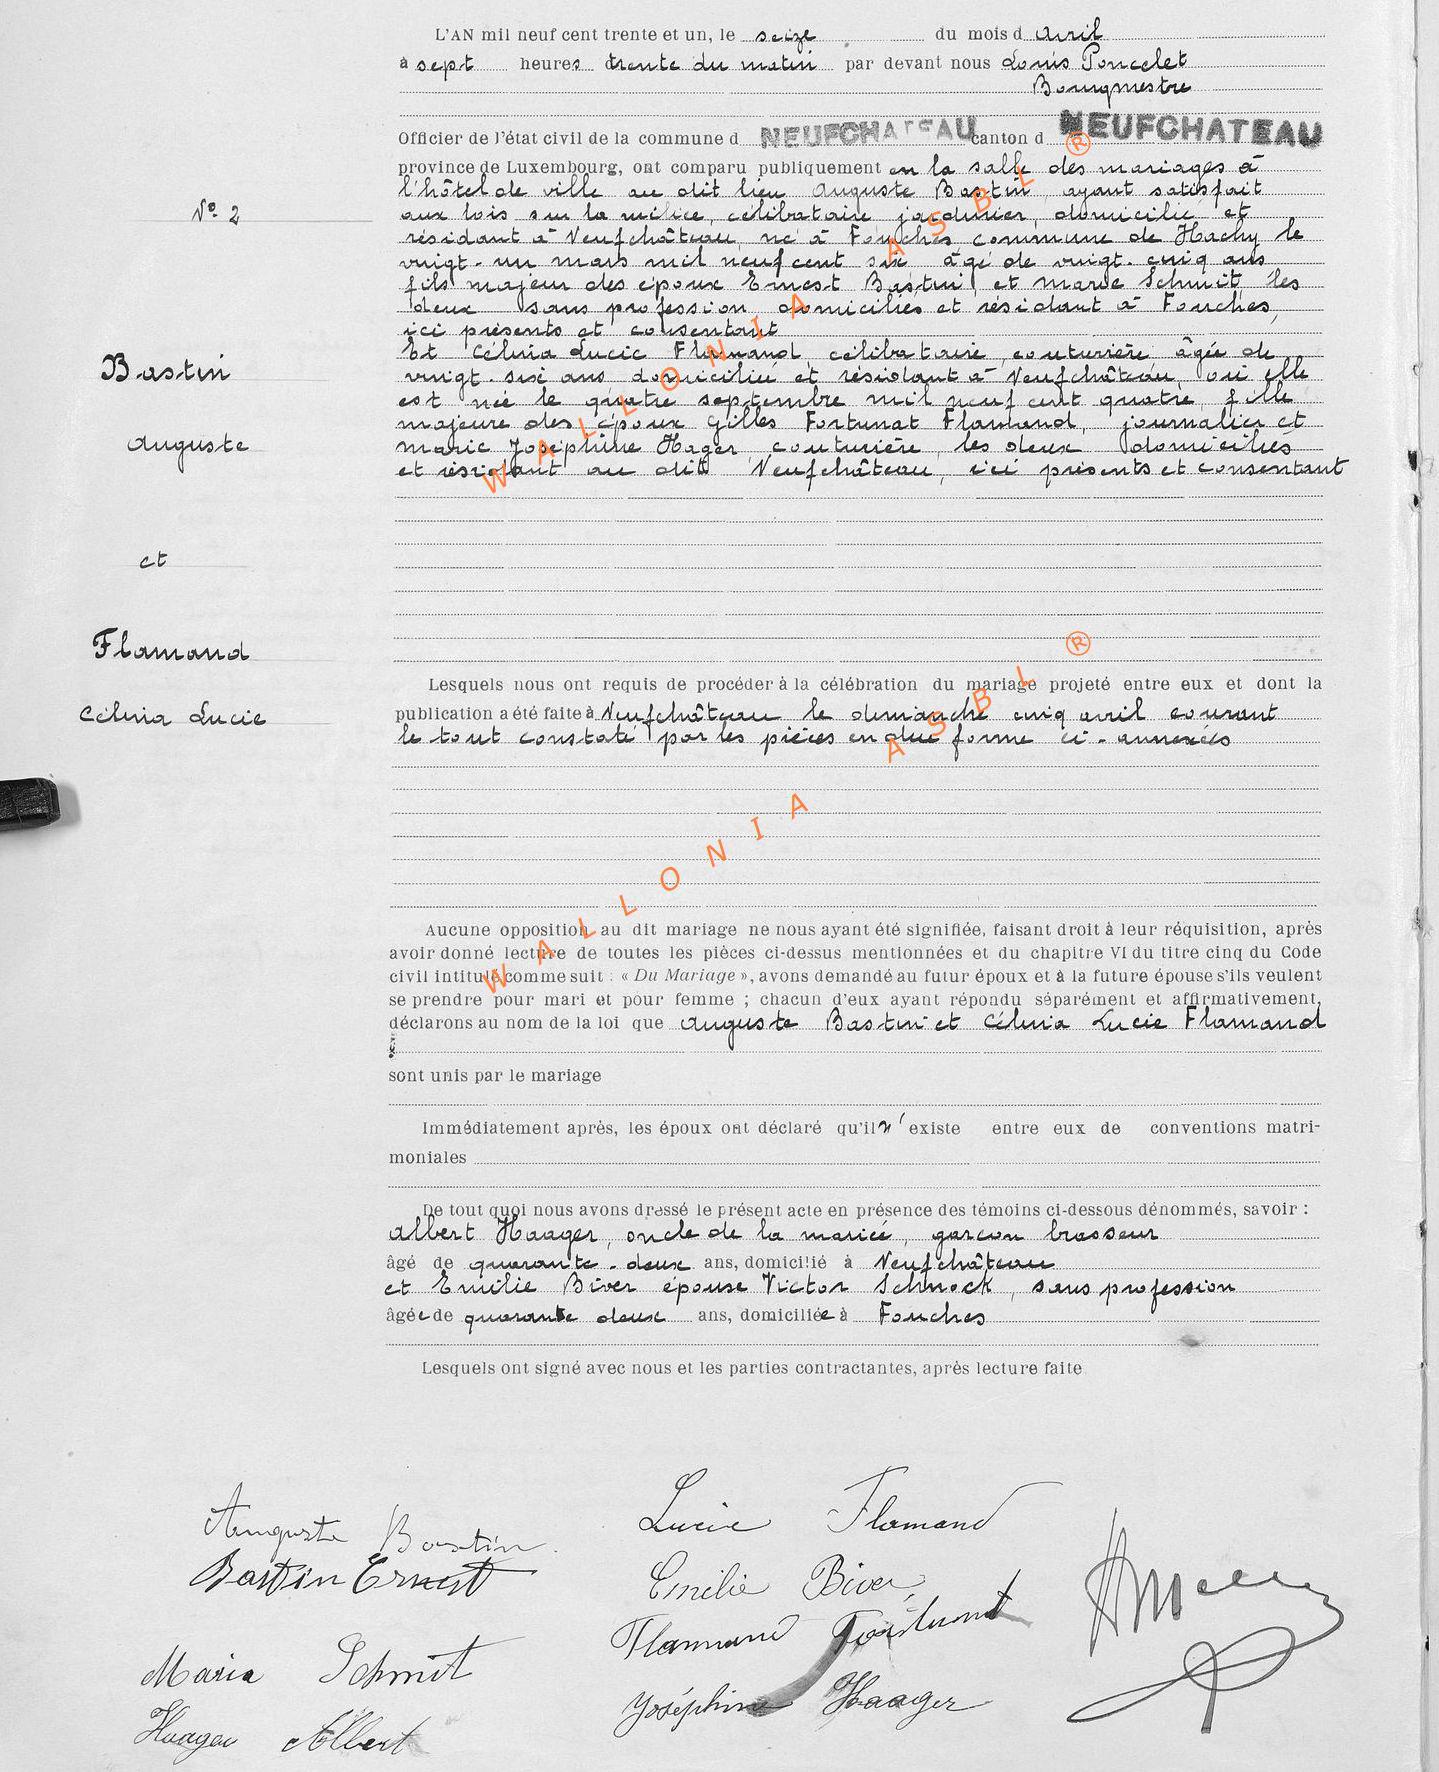 L'AN mil neuf cent trente et un, le seize du mois d avril
à sept heures trente du matin par devant nous Louis Poncelet
Bourgmestre
Officier de l'état civil de la commune d NEUFCHATEAU canton d NEUFCHATEAU
province de Luxembourg, ont comparu publiquement en la salle des mariages à
l'hôtel de ville au dit lieu Auguste Bastin, ayant satisfait
N° 2
aux lois sur la milice, célibataire jardinier, domicilié et
résidant à Neufchâteau, né à Fouches commune de Hachy le
vingt-un mars mil neuf cent six, âgé de vingt-cinq ans
fils majeur des époux Ernest Bastin et Marie Schmit, les
deux sans profession, domiciliés et résidant à Fouches,
ici présents et consentant
Et Célinia Lucie Flamand, célibataire, couturière âgée de
Bastin
vingt-six ans domiciliée et résidant à Neufchâteau, où elle
est née le quatre septembre mil neuf cent quatre, fille
majeure des époux Gilles Fortunat Flamand, journalier et
Auguste
marie Joséphine Hager, couturière, les deux domiciliés
et résidant au dit Neufchâteau, ici présents et consentant
et
Flamand
Célinia Lucie
Lesquels nous ont requis de procéder à la célébration du mariage projeté entre eux et dont la
publication a été faite à Neufchâteau le dimanche cinq avril courant
le tout constaté par les pièces en due forme ci-annexées
Aucune opposition au dit mariage ne nous ayant été signifiée, faisant droit à leur réquisition, après
avoir donné lecture de toutes les pièces ci-dessus mentionnées et du chapitre VI du titre cinq du Code
civil intitulé comme suit : « Du Mariage », avons demandé au futur époux et à la future épouse s'ils veulent
se prendre pour mari et pour femme ; chacun d'eux ayant répondu séparément et affirmativement,
déclarons au nom de la loi que Auguste Bastin et Célinia Lucie Flamand
sont unis par le mariage
Immédiatement après, les époux ont déclaré qu'il n'existe entre eux de conventions matri-
moniales
De tout quoi nous avons dressé le présent acte en présence des témoins ci-dessous dénommés, savoir :
Albert Haager, oncle de la mariée, garçon brasseur
âgé de quarante-deux ans, domicilié à Neufchâteau
et Emilie Biver épouse Victor Schnock, sans profession
âgée de quarante deux ans, domiciliée à Fouches
Lesquels ont signé avec nous et les parties contractantes, après lecture faite
Auguste Bastin
Lucie Flamand
Bastin Ernest
Emilie Biver
Flamand Fortunat
Maria Schmit
Joséphine Haager
Haager Albert
WALLONIA ASBL ®
WALLONIA ASBL ®